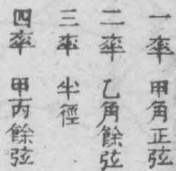 一率 甲角正弦
二率 乙角餘弦
三率 半徑
四率 甲丙餘弦